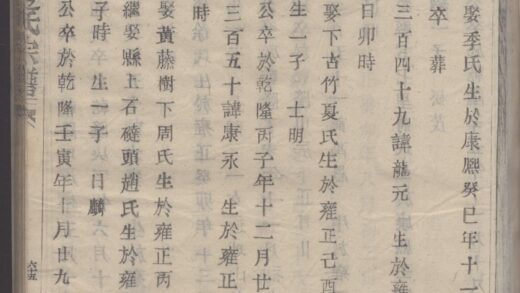 娶季氏生於康熙癸巳年十一
卒 葬
三百四十九諱龍元 生於雍
日卯時
娶下古竹夏氏生於雍正己酉
生一子 士明
公卒於乾隆丙子年十二月廿
三百五十諱康永 生於雍正
時
娶黃藤樹下周氏生於雍正丙
繼娶縣上石磋頭趙氏生於雍
子時卒生一子 日麟
公卒於乾隆壬寅年十月廿九
氏宗譜